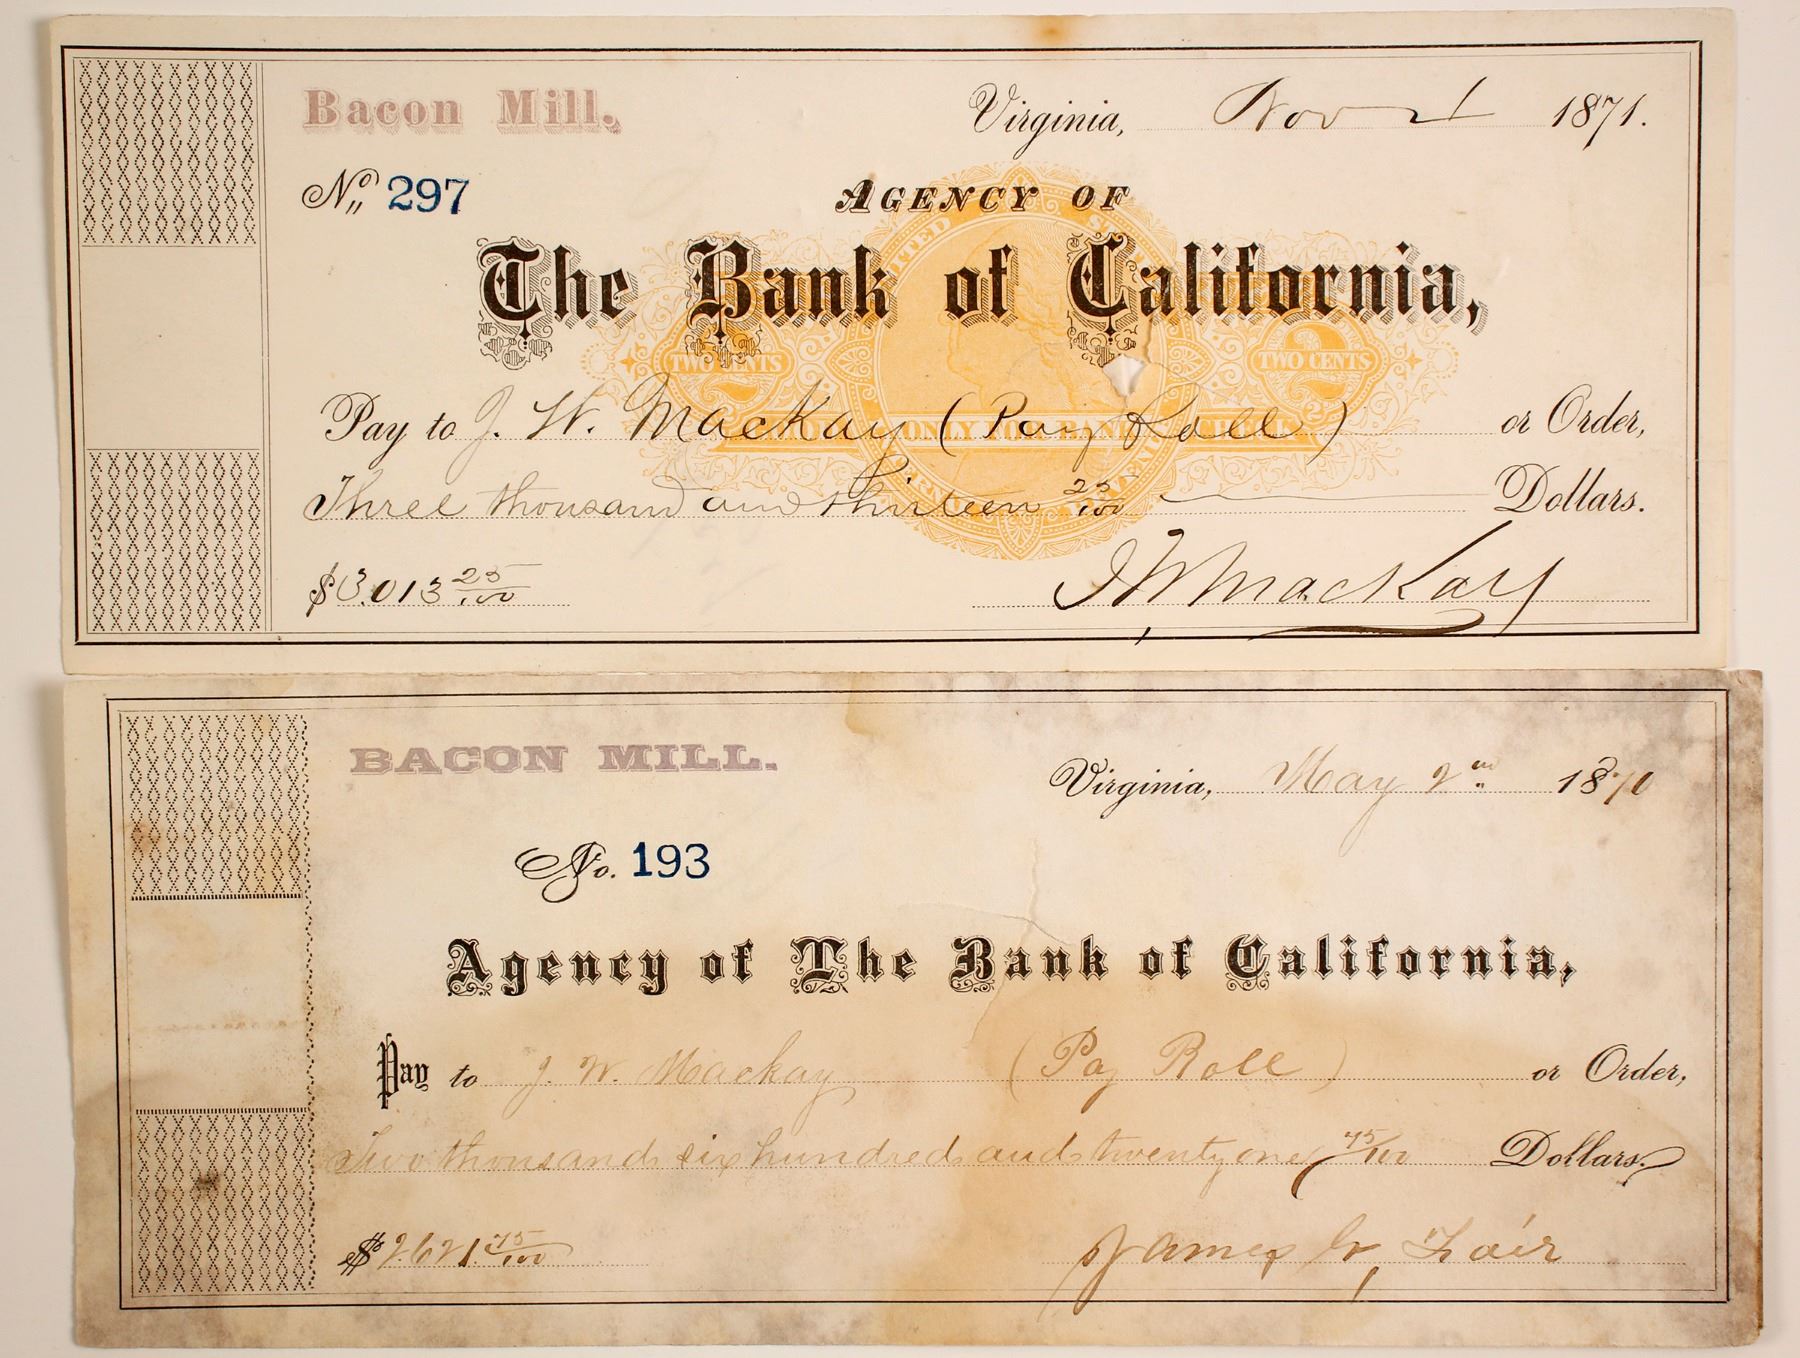 Bacon Mill.
Virginia, Nov 1 1871.
No. 297
AGENCY OF
The Bank of California,
UNITED
TWO CENTS 2 TWO CENTS 2
Pay to J. W. Mackay (Pay Roll) or Order,
ONLY FOR
Three thousand and thirteen 25/100 Dollars.
$3.013 25/100
J W Mackay
BACON MILL.
Virginia, May 2nd 1870
No. 193
Agency of The Bank of California,
Pay to J. W. Mackay (Pay Roll) or Order,
Two thousand six hundred and twenty one 75/100 Dollars.
$2.621.75/100
James G. Fair